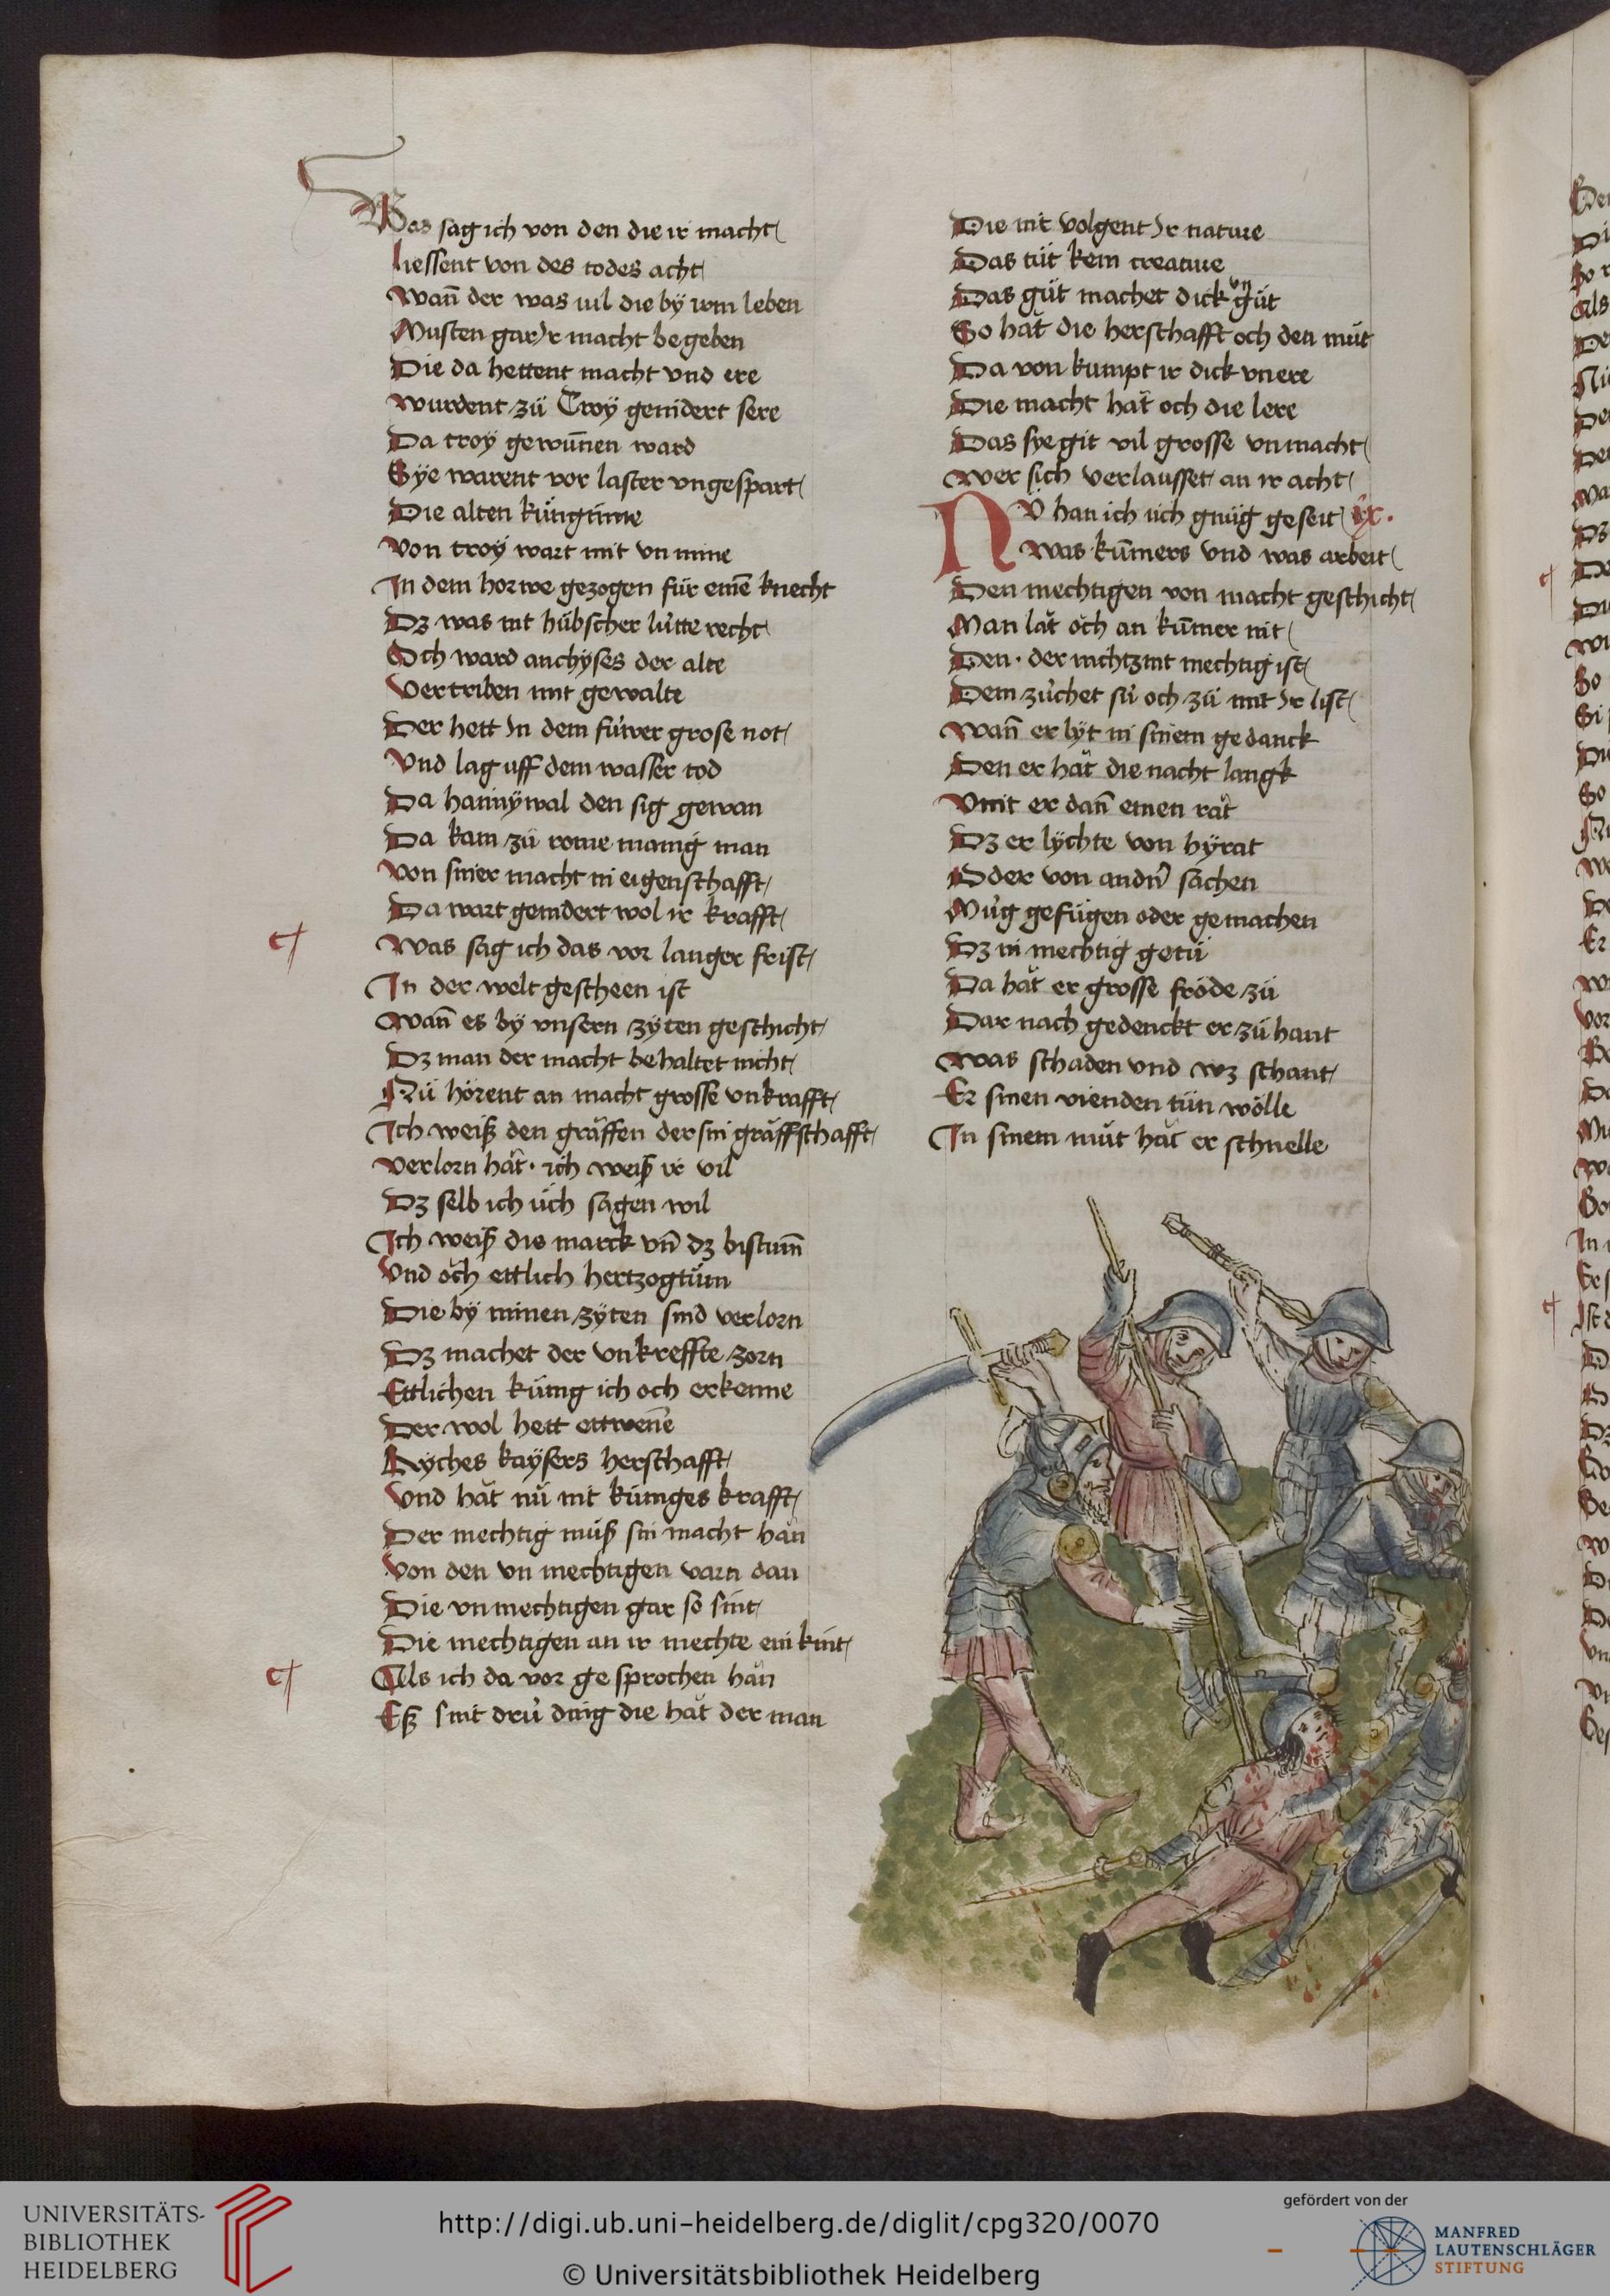 Was sag ich von den die ir macht
liessent von des todes acht
Wañ der was vil die bÿ irm leben
Musten gar Ir macht begeben
Die da hettent macht vnd ere
wurdent zů Troÿ genidert sere
Da troÿ gewuñen ward
Sÿe warent vor laster vngespart
Die alten küngīnne
von troÿ wart mit vnmine
In dem horwe gezogen für einē knecht
Dz was nit hübscher lütte recht
Och ward anchÿses der alte
Vertriben mit gewalte
Der hett In dem füwer grose not
Vnd lag uff dem wasser tod
Da hannÿwal den sig gewan
Da kam zů rome manig man
von siner macht in eigenschafft
Da wart genidert wol ir krafft
Was sag ich das vor langer frist
In der welt gescheen ist
Wañ es bÿ vnsern zÿten geschicht
Dz man der macht behaltet nicht
Nů hörent an macht grosse vnkrafft
Ich weiß den gräffen der sin gräffschafft
verlorn hät · ich weiß ir vil
Dz selb ich üch sagen wil
Ich weiß die marck vñ dz bistum̄
Vnd öch ettlich hertzogtům
Die bÿ minen zÿten sind verlorn
Dz machet der vnkreffte zorn
Ettlichen küng ich och erkenne
Der wol hett ettwenē
Rÿches kaÿsers herschafft
Vnd hät nů nit künges krafft
Der mechtig můß sin macht hän
von den vn mechtigen varn dan
Die vnmechtigen gar so sint
Die mechtigen an ir mechte ein kint
Als ich da vor gesprochen hän
Eß sint drü ding die hät der man
Die nit volgent Ir nature
Das tůt kein creature
Das gůt machet dick vn gůt
So hät die herschafft och den můt
Da von kumpt ir dick vnere
Die macht hät och die lere
Das sye git vil grosse vnmacht
wer sich verlausset an ir acht
NV han ich üch gnůg geseit ix.
was kūmers vnd was arbeit
Den mechtigen von macht geschicht
Man lät öch an kūmer nit
Den · der nichtznit mechtig ist
Dem züchet sü och zů mit Ir list
Wañ er lÿt in sinem gedanck
Den er hät die nacht langk
Vmit er dañ einen rät
Dz er lÿchte von hÿrat
Oder von andn̄ sachen
Müg gefügen oder gemachen
Dz in mechtig getů
Da hät er grosse fröde zů
Dar nach gedenckt er zů hant
Was schaden vnd wz schant
Er sinen vienden tůn wölle
In sinem můt hät er schnelle
UNIVERSITÄTS-
BIBLIOTHEK
HEIDELBERG
http://digi.ub.uni-heidelberg.de/diglit/cpg320/0070
© Universitätsbibliothek Heidelberg
gefördert von der
MANFRED
LAUTENSCHLÄGER
STIFTUNG